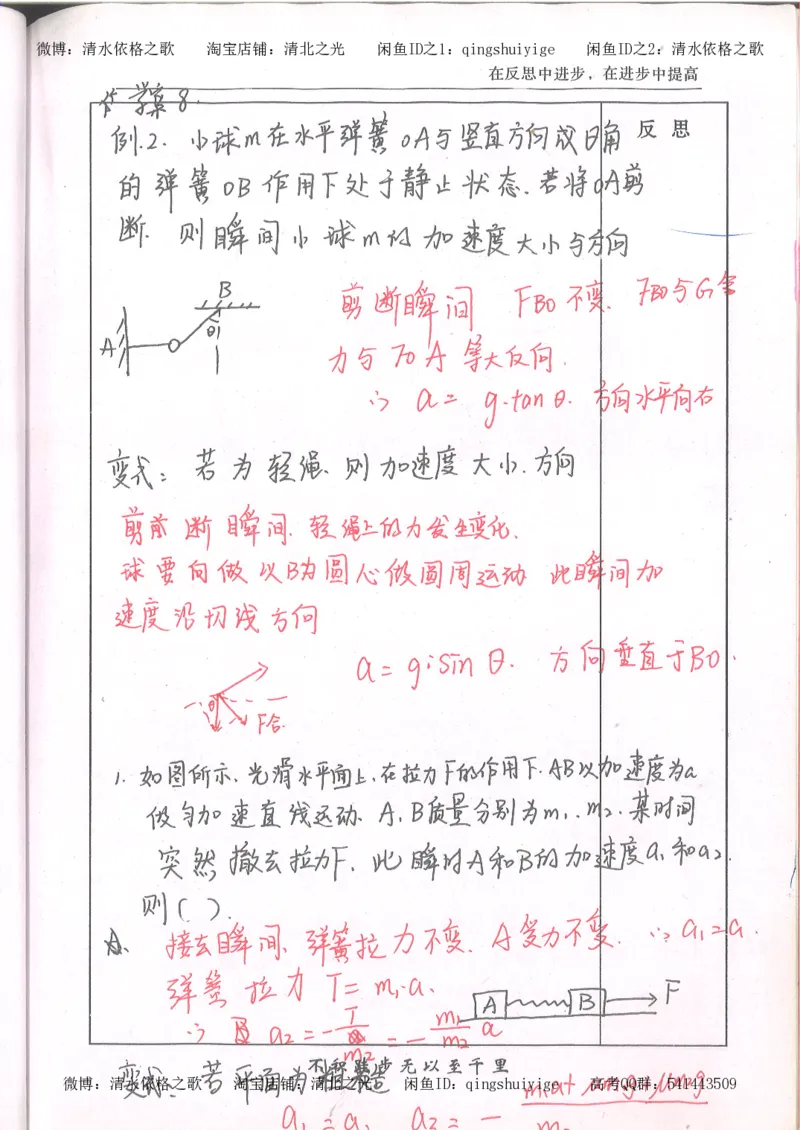 微博：清水依格之歌 淘宝店铺：清北之光 闲鱼ID之1：qingshuiyige 闲鱼ID之2：清水依格之歌
在反思中进步，在进步中提高
学案8.
反 思
例.2. 小球m在水平弹簧OA与竖直方向成θ角
的弹簧OB作用下处于静止状态.若将OA剪
断.则瞬间小球m的加速度大小与方向
B
θ
A
剪断瞬间 FBO不变. FBO与G合
力与FOA等大反向.
∴ a= g·tanθ. 方向水平向右
变式：若为轻绳.则加速度大小.方向
剪断瞬间.轻绳上的力发生变化.
球要向做以B为圆心做圆周运动 此瞬间加
速度沿切线方向
a= g·sinθ. 方向垂直于BO.
F合.
1. 如图所示.光滑水平面上,在拉力F的作用下.AB以加速度为a
做匀加速直线运动.A,B质量分别为m₁.m₂.某时间
突然撤去拉力F.此瞬时A和B的加速度a₁和a₂.
则( ).
瞬间.弹簧拉力不变.A受力不变.∴a₁=a.
弹簧拉力 T= m₁·a.
A B F
∴ a₂=-T/m₂=-m₁/m₂ a
不积跬步无以至千里
变式：若平面为粗糙
微博：清水依格之歌 淘宝店铺：清北之光 闲鱼ID：qingshuiyige 高考QQ群：541443509
a₁=a. a₂= -